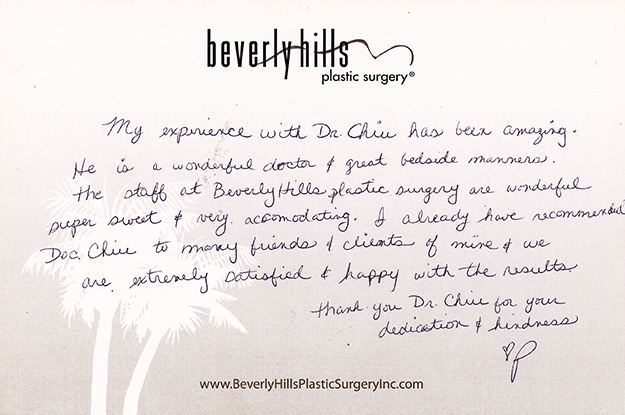 beverly hills
plastic surgery®
My experience with Dr. Chiu has been amazing.
He is a wonderful doctor & great bedside manners.
The staff at BeverlyHills plastic surgery are wonderful
super sweet & very accomodating. I already have recommended
Doc. Chiu to many friends & clients of mine & we
are extremely satisfied & happy with the results.
Thank you Dr. Chiu for your
dedication & kindness
♡P
www.BeverlyHillsPlasticSurgeryInc.com